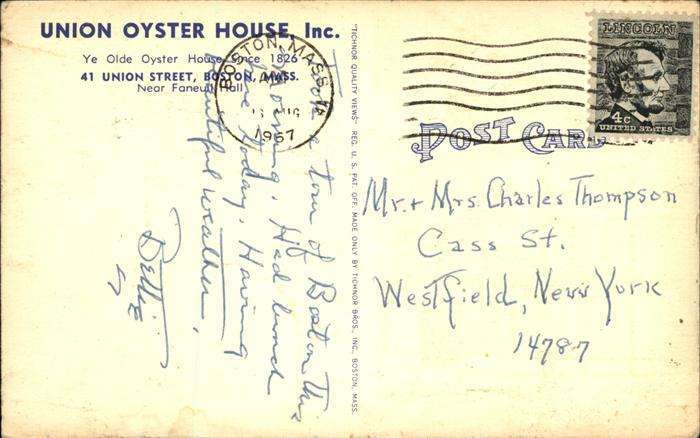 UNION OYSTER HOUSE, Inc.
Ye Olde Oyster House Since 1826
41 UNION STREET, BOSTON, MASS.
Near Faneuil Hall
BOSTON, MASS.
1967
Took a tour of Boston this
morning. Had lunch
here today. Having
beautiful weather.
"TICHNOR QUALITY VIEWS" REG. U. S. PAT. OFF. MADE ONLY BY TICHNOR BROS., INC., BOSTON, MASS.
LINCOLN
4c
UNITED STATES
POST CARD
Mr. + Mrs. Charles Thompson
Cass St.
Westfield, New York
14787